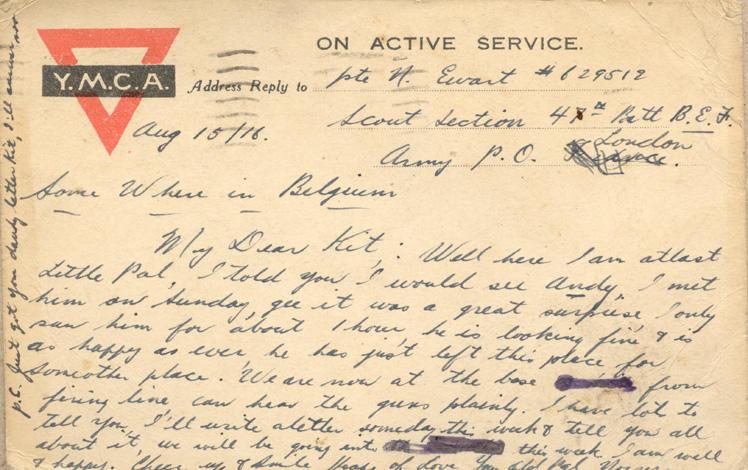 ON ACTIVE SERVICE.
Y.M.C.A.
Address Reply to Pte N. Ewart #629512
Aug 15/16.
Scout Section 47th Batt B.E.F.
Army P.O. London
Some Where in Belgium
My Dear Kit; Well here I am atlast
Little Pal, I told you I would see Andy, I met
him on Sunday gee it was a great surprise I only
saw him for about 1 hour he is looking fine & is
as happy as ever he has just left this place for
someother place. We are now at the base from
firing line can hear the guns plainly. I have lot to
tell you, I'll write aletter someday this week & tell you all
about it, we will be going into this week I am well
& happy. Cheer up & Smile Heaps of love Your old Pal
P.C. Just got you dandy letter Kit, I'll answer